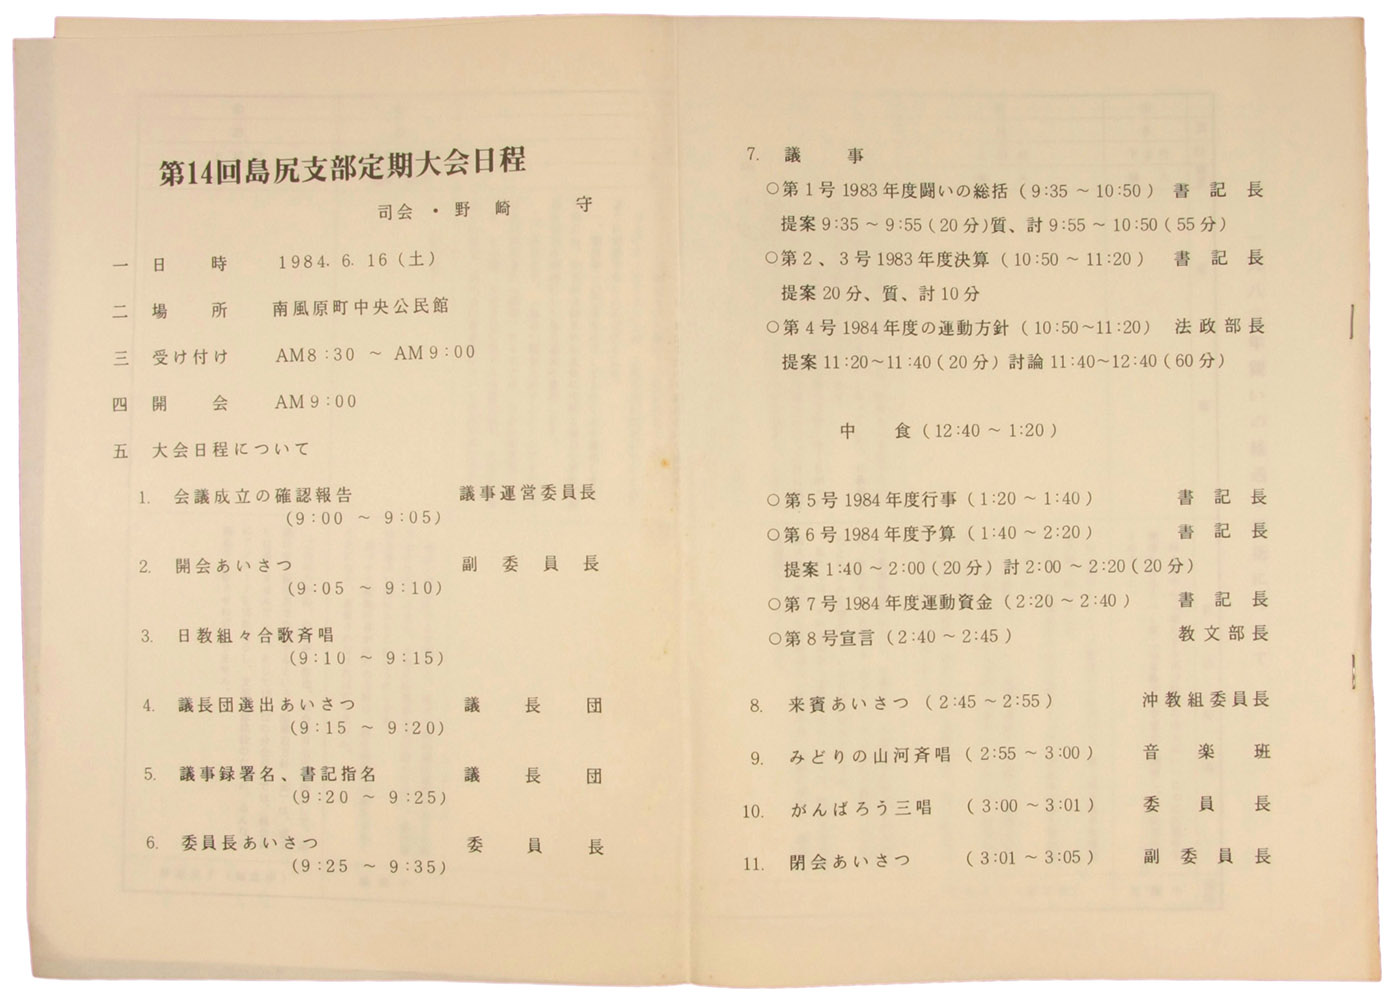 第14回島尻支部定期大会日程
司会・野崎 守
一 日時 1984.6.16(土)
二 場所 南風原町中央公民館
三 受け付け AM8:30 ~ AM9:00
四 開会 AM9:00
五 大会日程について
1. 会議成立の確認報告 議事運営委員長
(9:00 ~ 9:05)
2. 開会あいさつ 副委員長
(9:05 ~ 9:10)
3. 日教組々合歌斉唱
(9:10 ~ 9:15)
4. 議長団選出あいさつ 議長団
(9:15 ~ 9:20)
5. 議事録署名、書記指名 議長団
(9:20 ~ 9:25)
6. 委員長あいさつ 委員長
(9:25 ~ 9:35)
7. 議事
○第1号1983年度闘いの総括(9:35 ~ 10:50) 書記長
提案9:35 ~ 9:55(20分)質、討9:55 ~ 10:50(55分)
○第2、3号1983年度決算(10:50 ~ 11:20) 書記長
提案20分、質、討10分
○第4号1984年度の運動方針(10:50~11:20) 法政部長
提案11:20~11:40(20分)討論11:40~12:40(60分)
中食(12:40 ~ 1:20)
○第5号1984年度行事(1:20 ~ 1:40) 書記長
○第6号1984年度予算(1:40 ~ 2:20) 書記長
提案1:40 ~ 2:00(20分)討2:00 ~ 2:20(20分)
○第7号1984年度運動資金(2:20 ~ 2:40) 書記長
○第8号宣言(2:40 ~ 2:45) 教文部長
8. 来賓あいさつ(2:45 ~ 2:55) 沖教組委員長
9. みどりの山河斉唱(2:55 ~ 3:00) 音楽班
10. がんばろう三唱 (3:00 ~ 3:01) 委員長
11. 閉会あいさつ (3:01 ~ 3:05) 副委員長